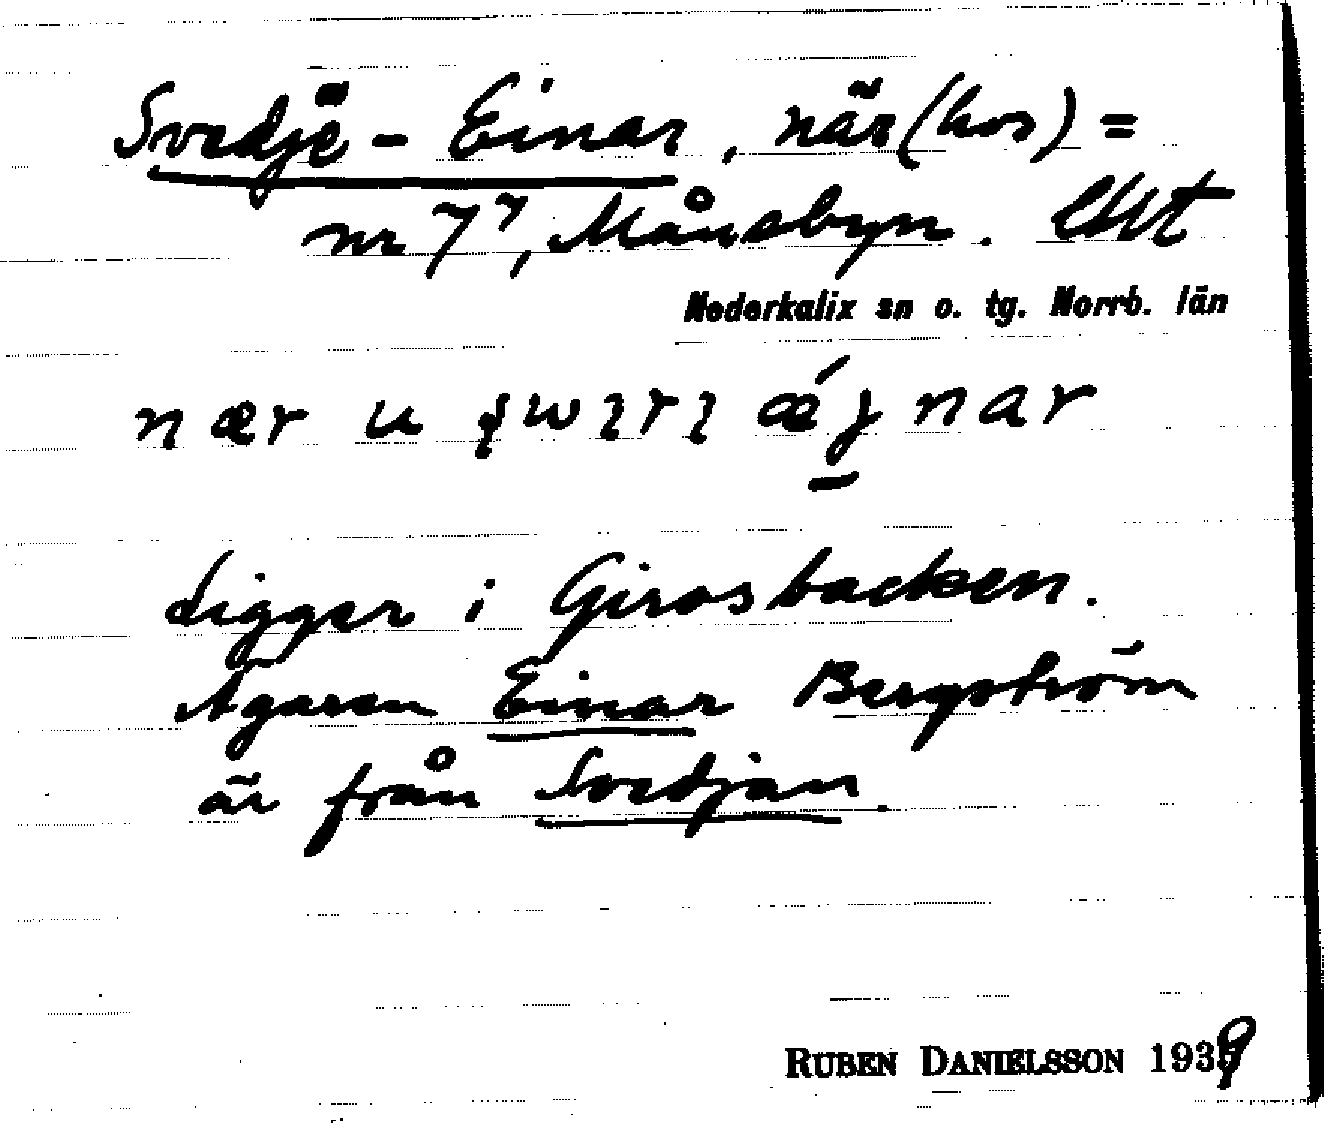 Svedje-Einar, när (hos) =
nr 7⁷, Månsbyn.
Nederkalix sn o. tg. Norrb. län
nær
Ligger i Girosbacken.
Ägaren Einar Bergström
är från Svedjan.
RUBEN DANIELSSON 1939